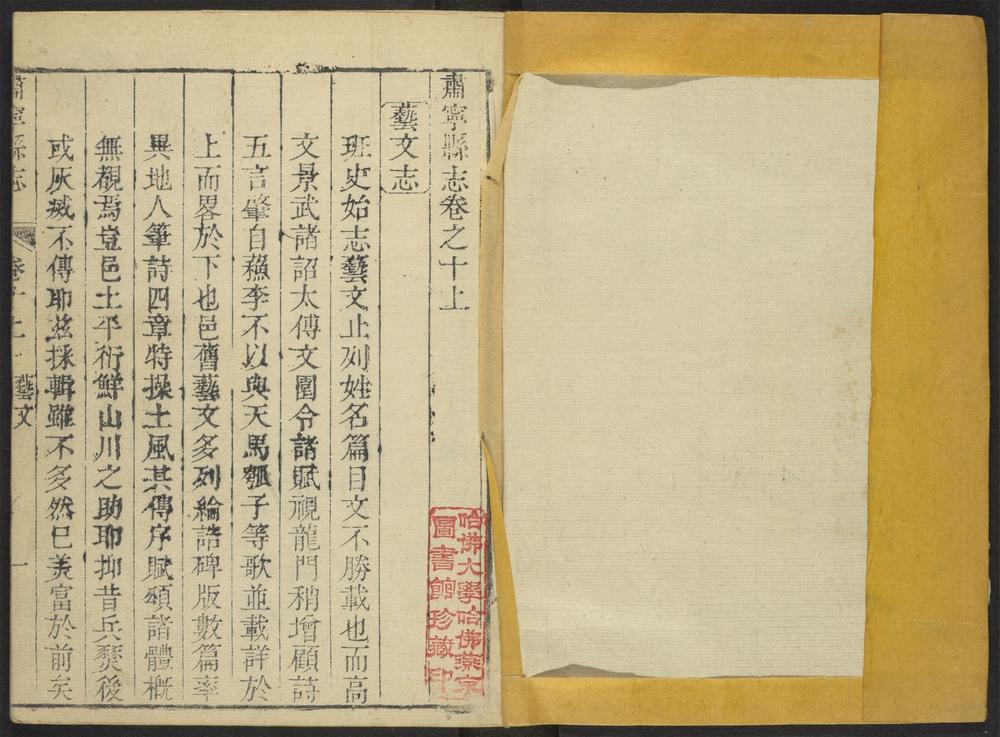 肅寧縣志卷之十上
藝文志
班史始志藝文止列姓名篇目文不勝載也而高
文景武諸詔太傅文園令諸賦視龍門稍增顧詩
五言肇自蘓李不以與天馬瓠子等歌並載詳於
上而畧於下也邑舊藝文多列綸誥碑版數篇率
異地人筆詩四章特操土風其傳序賦頌諸體概
無觀焉豈邑土平衍鮮山川之助耶抑昔兵燹後
或灰滅不傳耶茲採輯雖不多然已羙富於前矣
肅寧縣志
卷十上
藝文
一
哈佛大學哈佛燕京
圖書館珍藏印